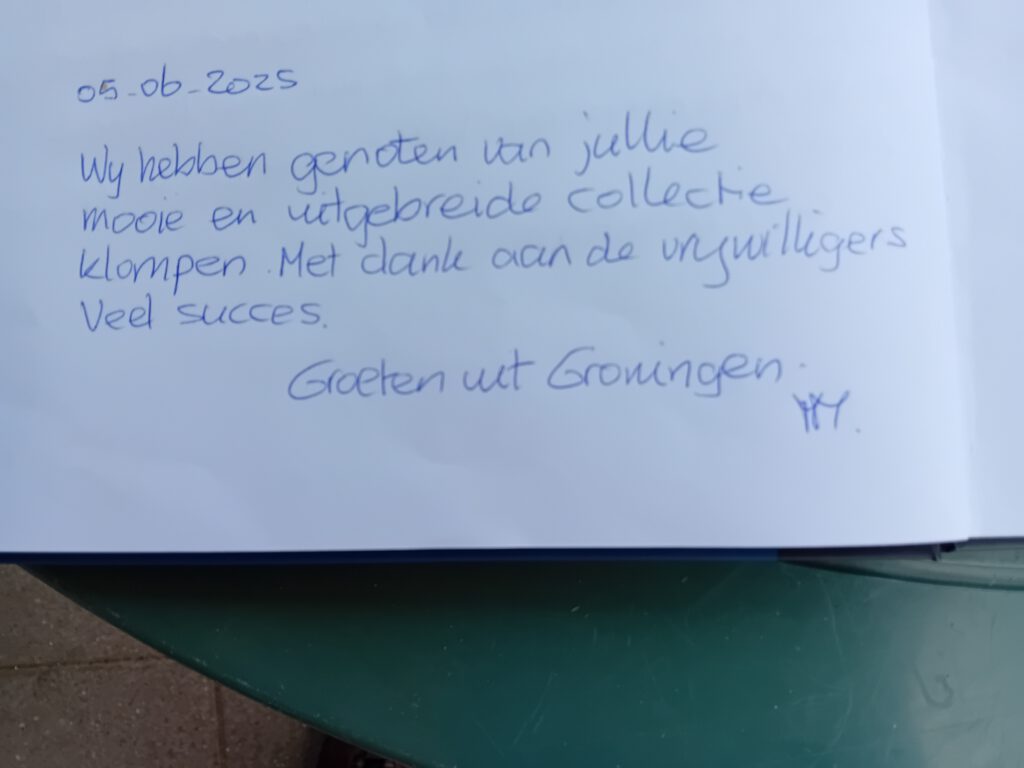 05-06-2025
Wij hebben genoten van jullie
mooie en uitgebreide collectie
klompen. Met dank aan de vrijwilligers
Veel succes.
Groeten uit Groningen.